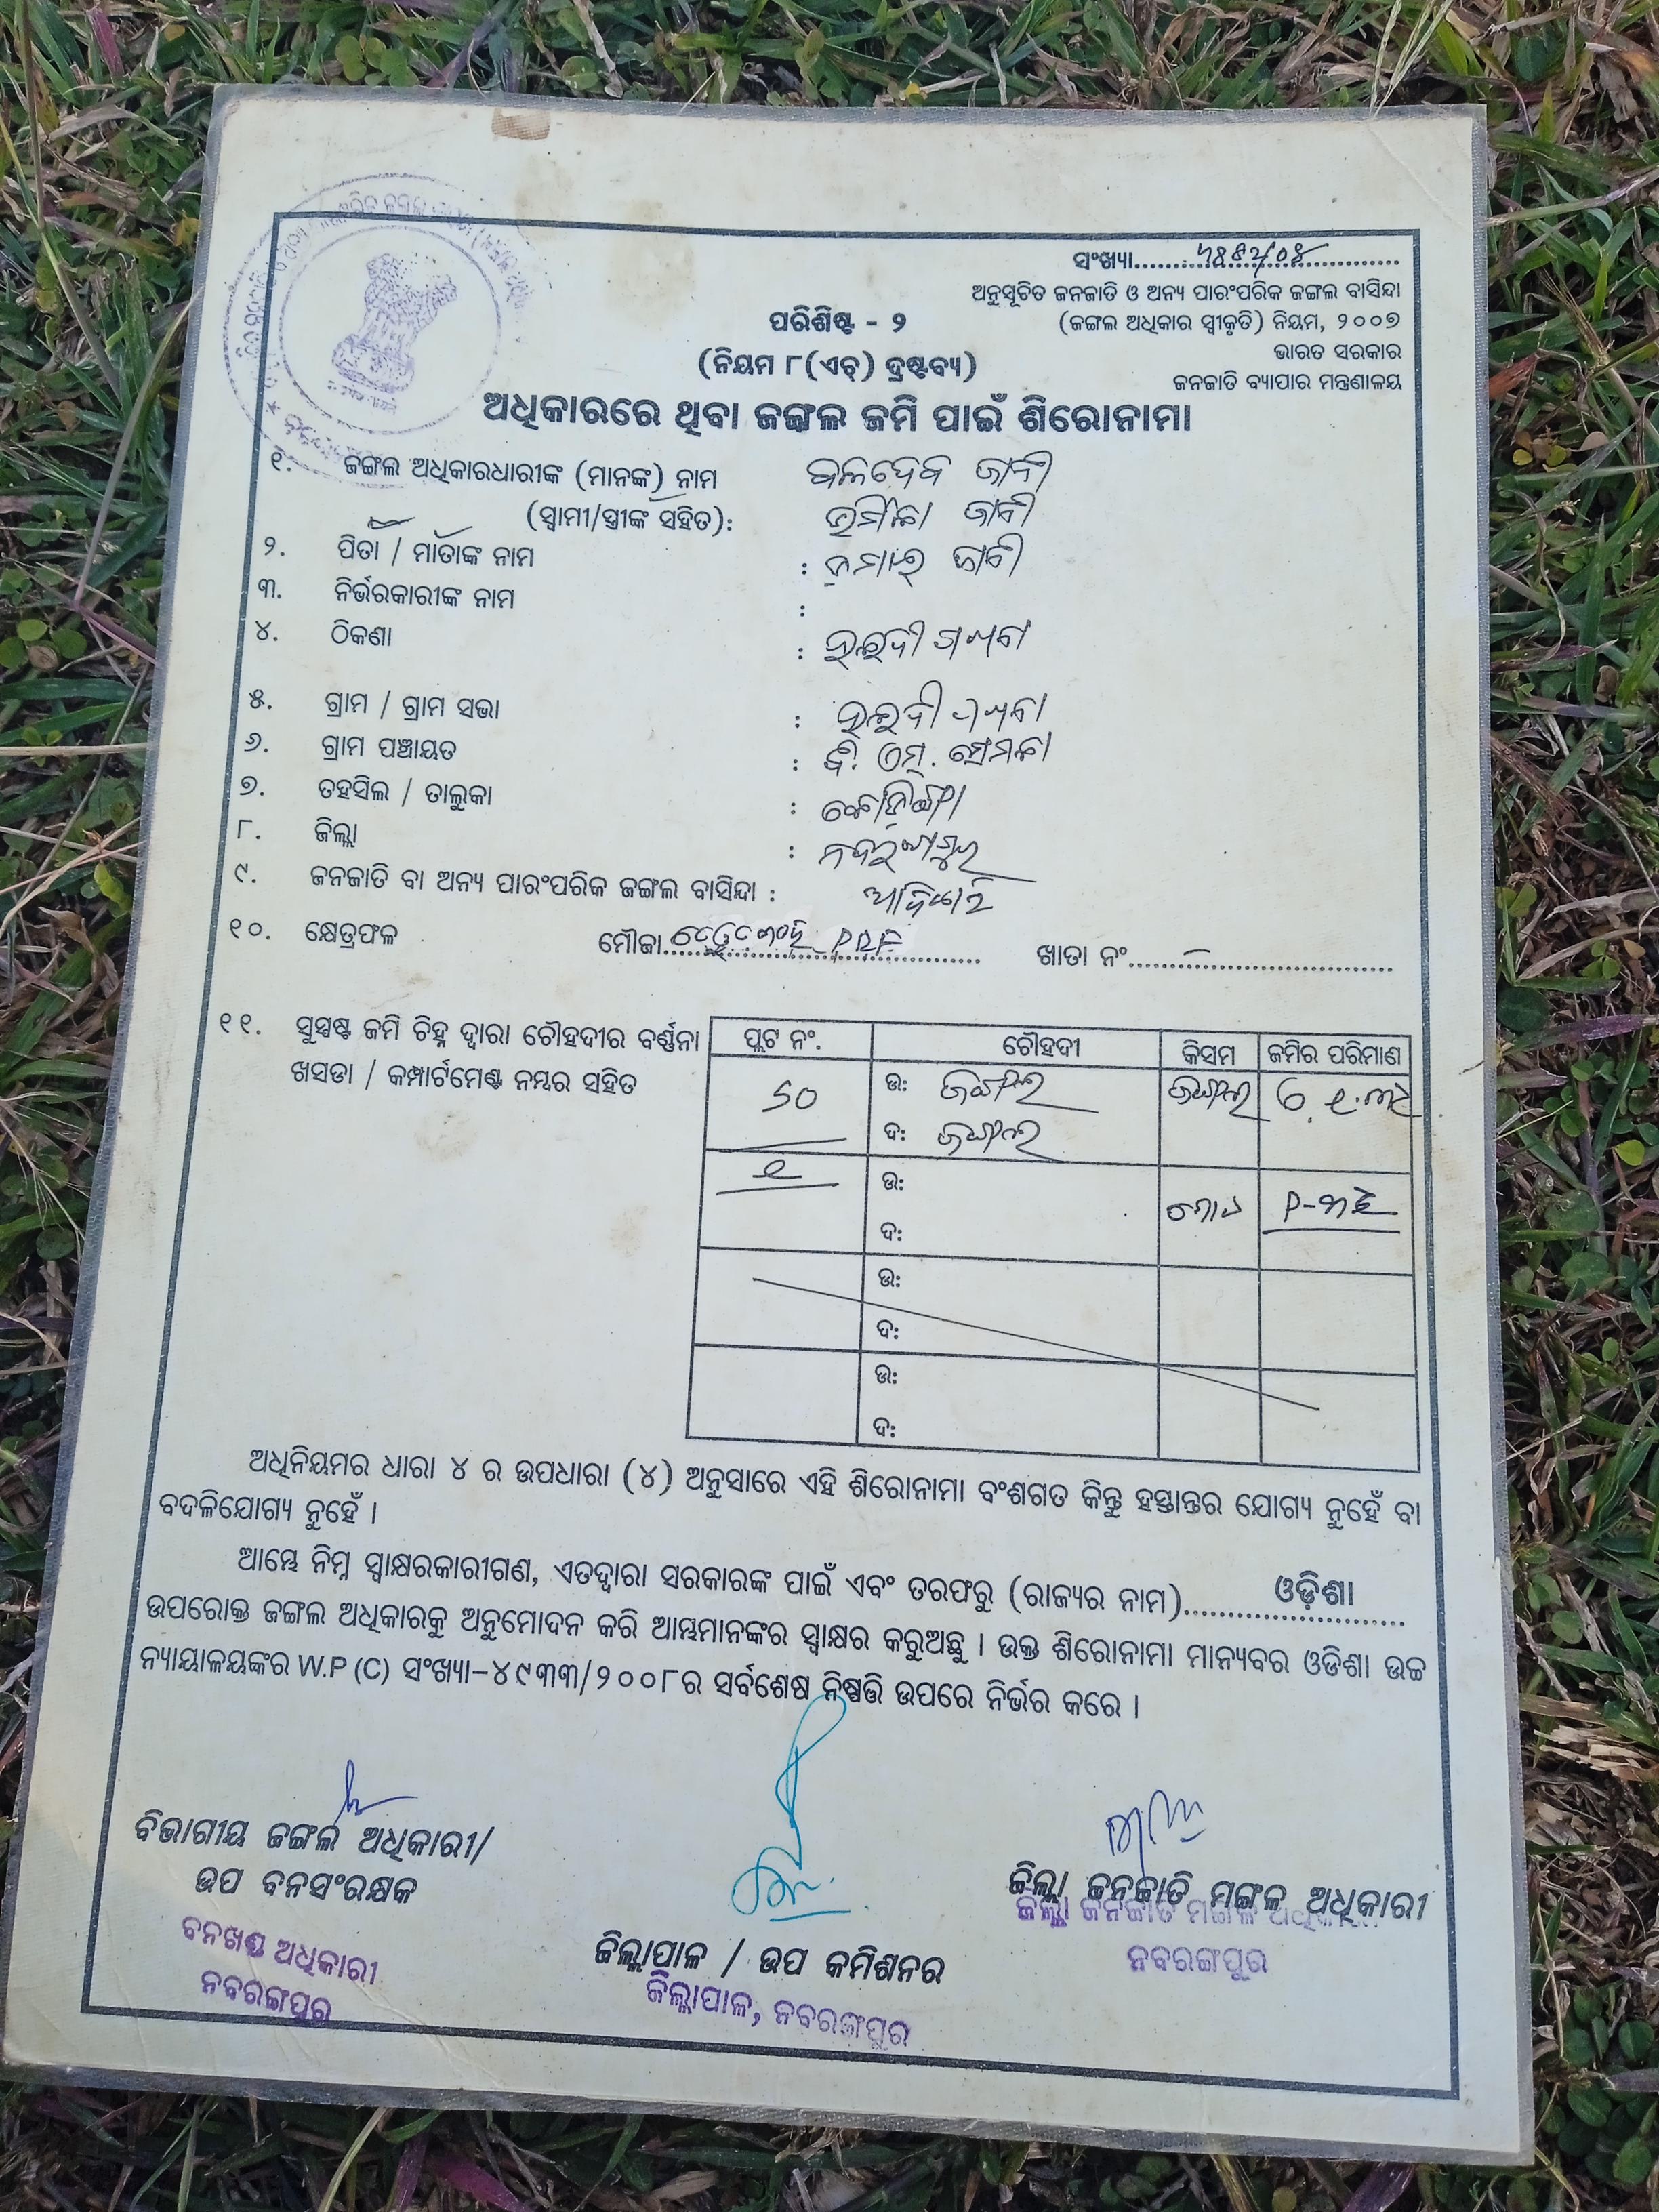 ସଂଖ୍ୟା
ଅନୁସୂଚିତ ଜନଜାତି ଓ ଅନ୍ୟ ପାରଂପରିକ ଜଙ୍ଗଲ ବାସିନ୍ଦା
(ଜଙ୍ଗଲ ଅଧିକାର ସ୍ୱୀକୃତି) ନିୟମ, ୨୦୦୭
ଭାରତ ସରକାର
ଜନଜାତି ବ୍ୟାପାର ମନ୍ତ୍ରଣାଳୟ
ପରିଶିଷ୍ଟ - ୨
(ନିୟମ ୮(ଏଚ୍) ଦ୍ରଷ୍ଟବ୍ୟ)
ଅଧିକାରରେ ଥିବା ଜଙ୍ଗଲ ଜମି ପାଇଁ ଶିରୋନାମା
୧. ଜଙ୍ଗଲ ଅଧିକାରଧାରୀଙ୍କ (ମାନଙ୍କ) ନାମ ବଳଦେବ ଜାନୀ
(ସ୍ୱାମୀ/ସ୍ତ୍ରୀଙ୍କ ସହିତ): ଜାନୀ
୨. ପିତା / ମାତାଙ୍କ ନାମ : ଜାନୀ
୩. ନିର୍ଭରକାରୀଙ୍କ ନାମ :
୪. ଠିକଣା :
୫. ଗ୍ରାମ / ଗ୍ରାମ ସଭା :
୬. ଗ୍ରାମ ପଞ୍ଚାୟତ : ବି. ଏମ୍. ସେମଳା
୭. ତହସିଲ / ତାଲୁକା :
୮. ଜିଲ୍ଲା : ନବରଙ୍ଗପୁର
୯. ଜନଜାତି ବା ଅନ୍ୟ ପାରଂପରିକ ଜଙ୍ଗଲ ବାସିନ୍ଦା : ଆଦିବାସୀ
୧୦. କ୍ଷେତ୍ରଫଳ ମୌଜା PRF ଖାତା ନଂ
୧୧. ସୁସ୍ପଷ୍ଟ ଜମି ଚିହ୍ନ ଦ୍ୱାରା ଚୌହଦୀର ବର୍ଣ୍ଣନା
ଖସଡା / କମ୍ପାର୍ଟମେଣ୍ଟ ନମ୍ବର ସହିତ
ପ୍ଲଟ ନଂ. ଚୌହଦୀ କିସମ ଜମିର ପରିମାଣ
ଉ: ଜଙ୍ଗଲ ଜଙ୍ଗଲ
ଦ: ଜଙ୍ଗଲ
୧ ଉ: ମୋଟ
ଦ:
ଉ:
ଦ:
ଉ:
ଦ:
ଅଧିନିୟମର ଧାରା ୪ ର ଉପଧାରା (୪) ଅନୁସାରେ ଏହି ଶିରୋନାମା ବଂଶଗତ କିନ୍ତୁ ହସ୍ତାନ୍ତର ଯୋଗ୍ୟ ନୁହେଁ ବା
ବଦଳିଯୋଗ୍ୟ ନୁହେଁ ।
ଆମ୍ଭେ ନିମ୍ନ ସ୍ୱାକ୍ଷରକାରୀଗଣ, ଏତଦ୍ଵାରା ସରକାରଙ୍କ ପାଇଁ ଏବଂ ତରଫରୁ (ରାଜ୍ୟର ନାମ) ଓଡ଼ିଶା
ଉପରୋକ୍ତ ଜଙ୍ଗଲ ଅଧିକାରକୁ ଅନୁମୋଦନ କରି ଆମ୍ଭମାନଙ୍କର ସ୍ୱାକ୍ଷର କରୁଅଛୁ । ଉକ୍ତ ଶିରୋନାମା ମାନ୍ୟବର ଓଡିଶା ଉଚ୍ଚ
ନ୍ୟାୟାଳୟଙ୍କର W.P (C) ସଂଖ୍ୟା-୪୯୩୩/୨୦୦୮ର ସର୍ବଶେଷ ନିଷ୍ପତ୍ତି ଉପରେ ନିର୍ଭର କରେ ।
ବିଭାଗୀୟ ଜଙ୍ଗଲ ଅଧିକାରୀ/
ଉପ ବନସଂରକ୍ଷକ
ବନଖଣ୍ଡ ଅଧିକାରୀ
ନବରଙ୍ଗପୁର
ଜିଲ୍ଲାପାଳ / ଉପ କମିଶନର
ଜିଲ୍ଲାପାଳ, ନବରଙ୍ଗପୁର
ଜିଲ୍ଲା ଜନଜାତି ମଙ୍ଗଳ ଅଧିକାରୀ
ଜିଲ୍ଲା ଜନଜାତି ମଙ୍ଗଳ ଅଧିକାରୀ
ନବରଙ୍ଗପୁର